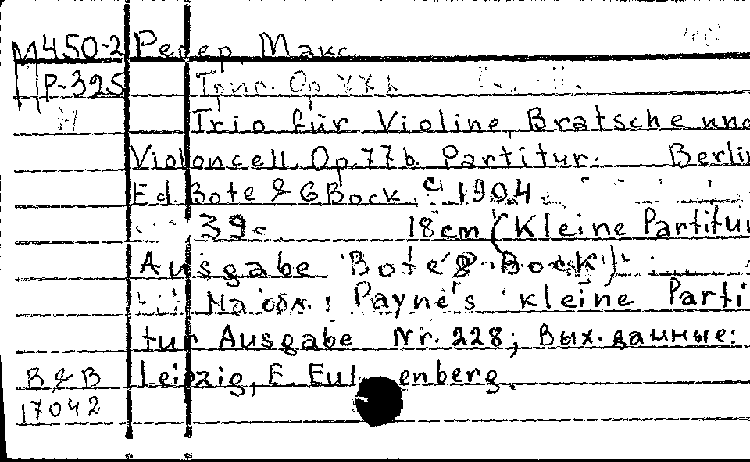 М450-2 Регер, Макс
Р-325 Трио. Op. 77b
Trio für Violine, Bratsche und
Violoncell. Op. 77b. Partitur. Berlin
Ed Bote & G Bock, c 1904.
39с 18 cm (Kleine Partitur
Ausgabe Bote & Bock)
На обл.: Payne's kleine Parti
tur Ausgabe Nr. 228; Вых. данные:
B & B Leipzig, E. Eulenberg.
17042